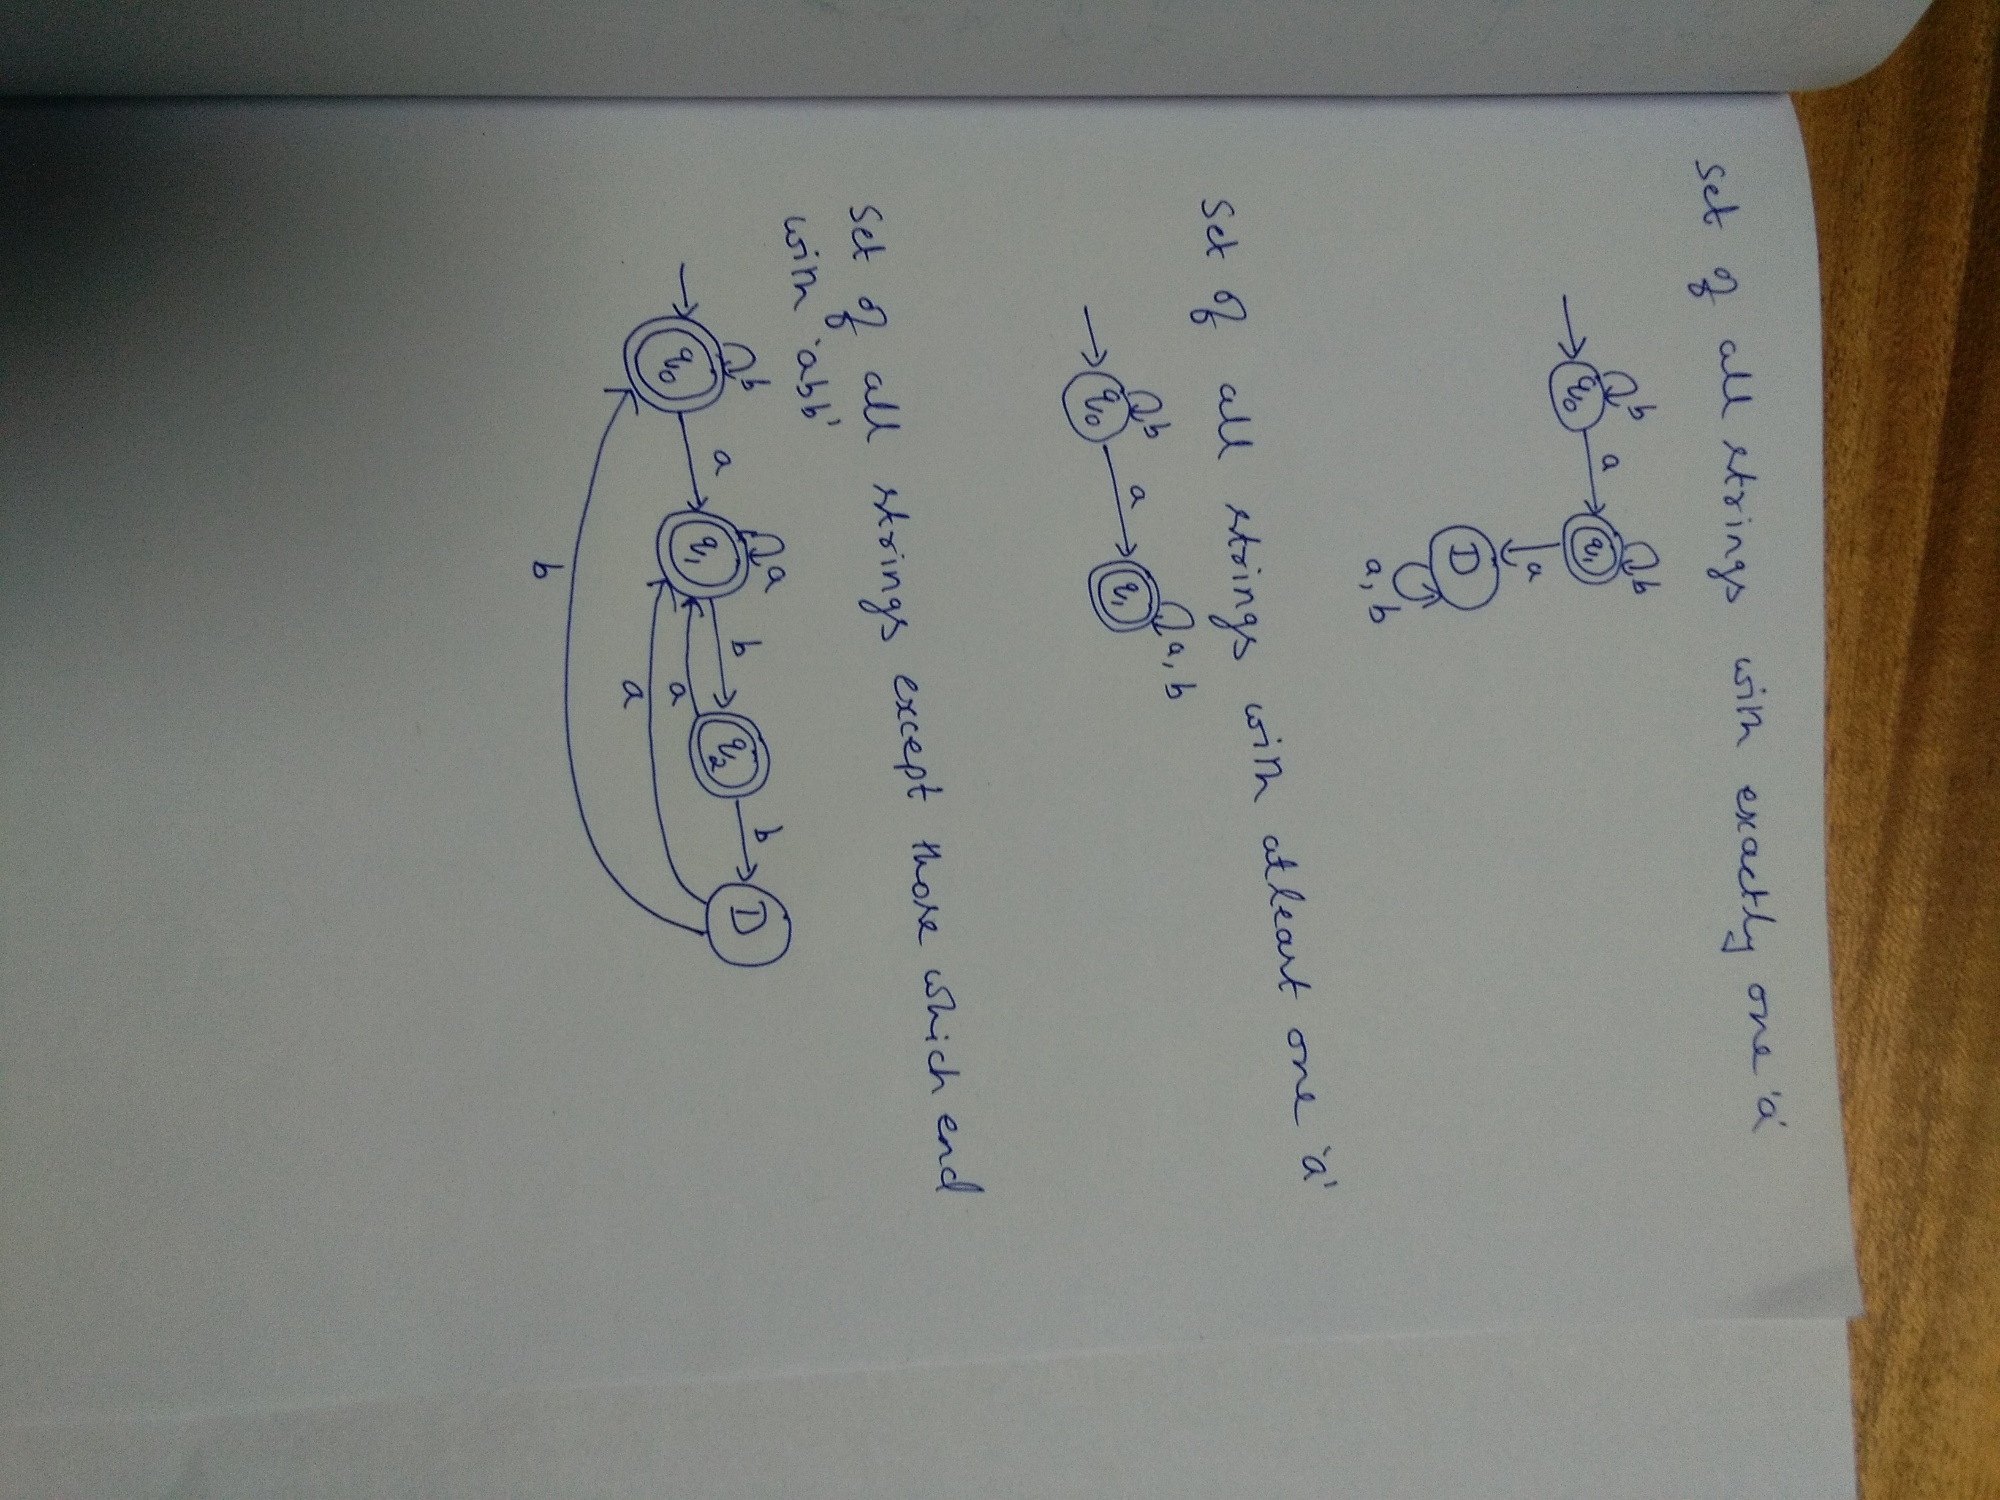 Set of all strings with exactly one 'a'
b
b
q0
a
q1
a
D
a, b
Set of all strings with atleast one 'a'
b
a, b
q0
a
q1
Set of all strings except those which end
with 'abb'
b
a
q0
a
q1
b
q2
b
D
a
a
b